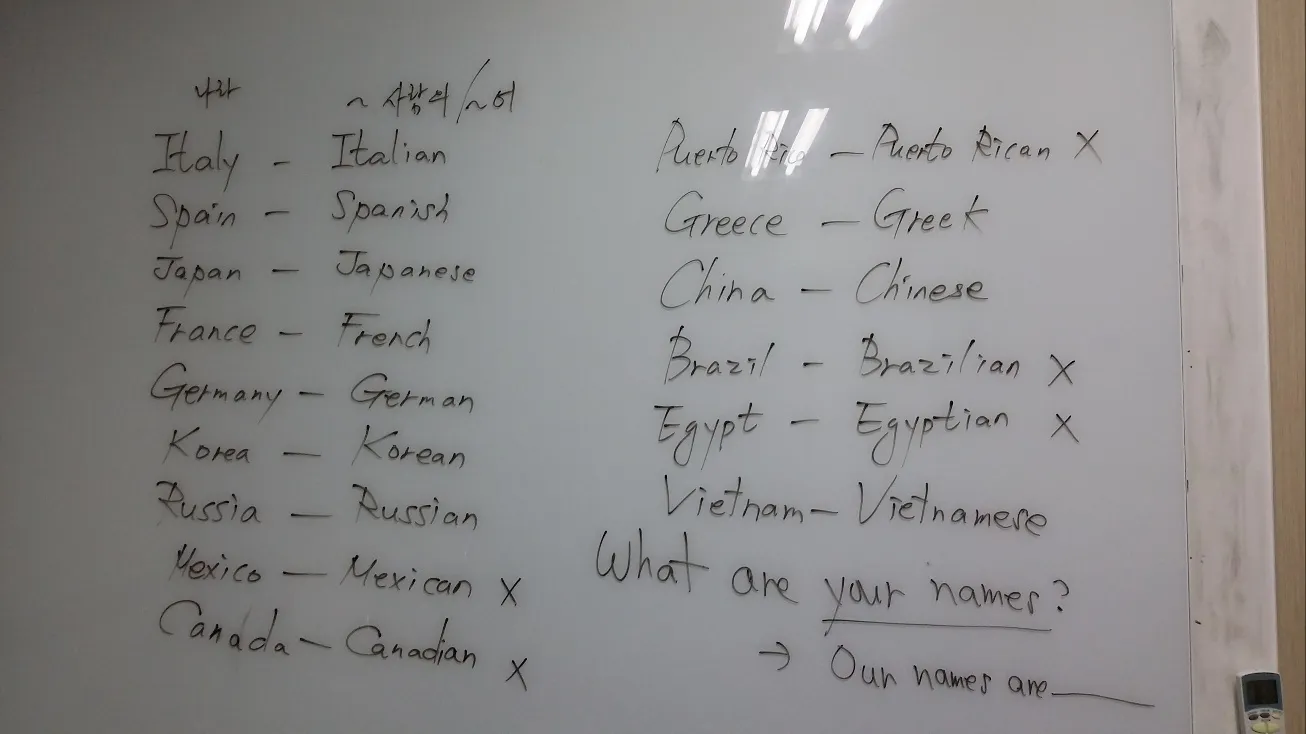 나라 ~ 사람의/~어
Italy - Italian
Spain - Spanish
Japan - Japanese
France - French
Germany - German
Korea - Korean
Russia - Russian
Mexico - Mexican X
Canada - Canadian X
Puerto Rico - Puerto Rican X
Greece - Greek
China - Chinese
Brazil - Brazilian X
Egypt - Egyptian X
Vietnam - Vietnamese
What are your names?
→ Our names are____